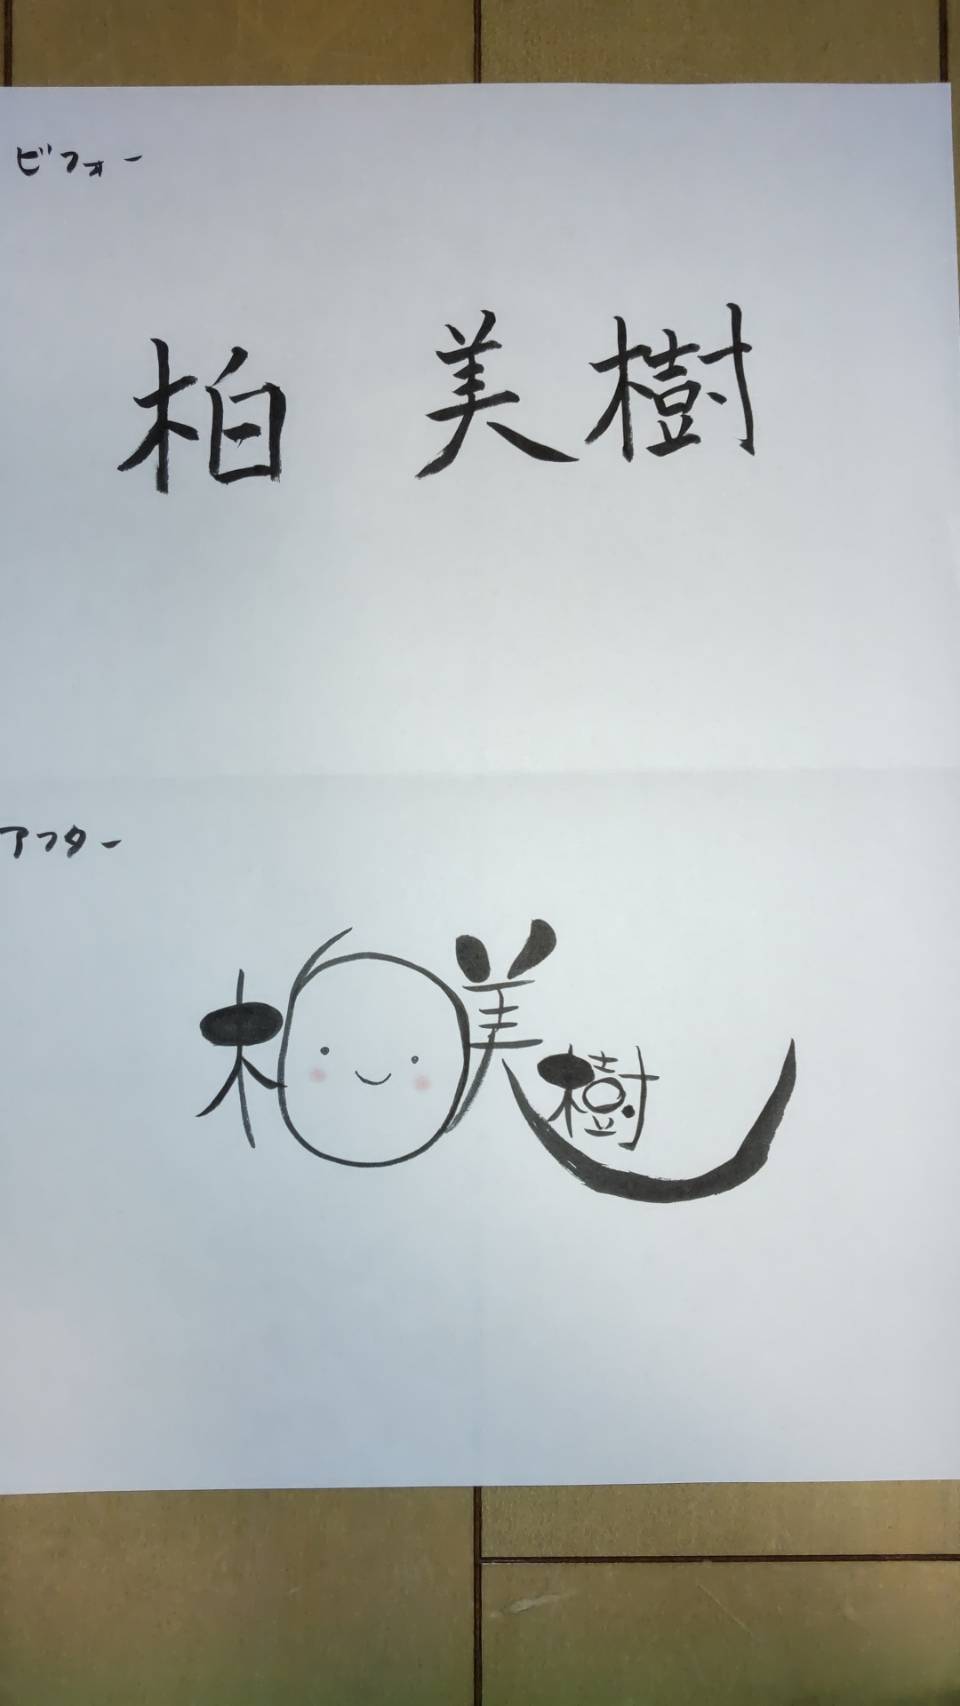 ビフォー
柏 美樹
アフター
柏美樹